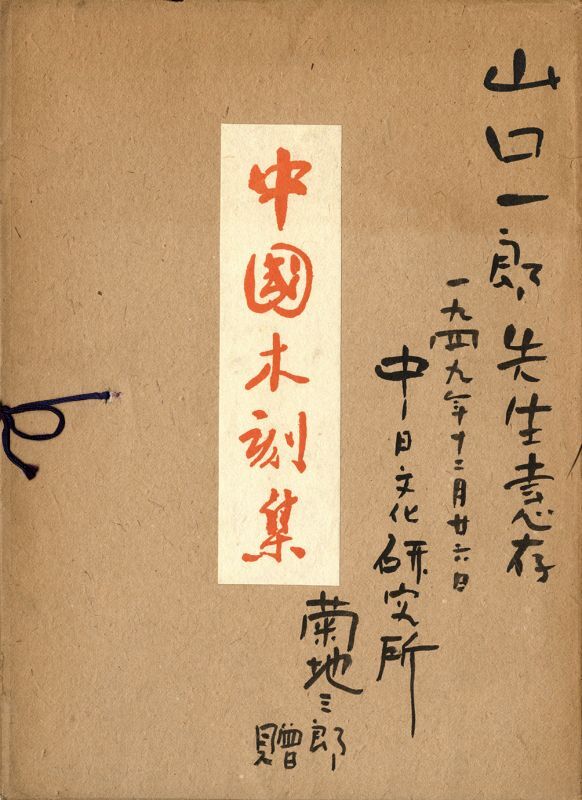 山口一郎先生恵存
一九四九年十二月廿六日
中日文化研究所
菊地三郎
贈
中國木刻集